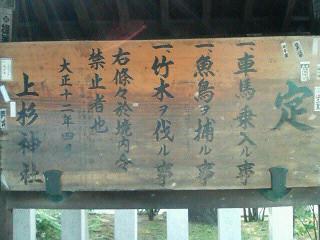 定
一、車馬ヲ乗入ル事
一、魚鳥ヲ捕ル事
一、竹木ヲ伐ル事
右條々於境内令
禁止者也
大正十二年四月
上杉神社